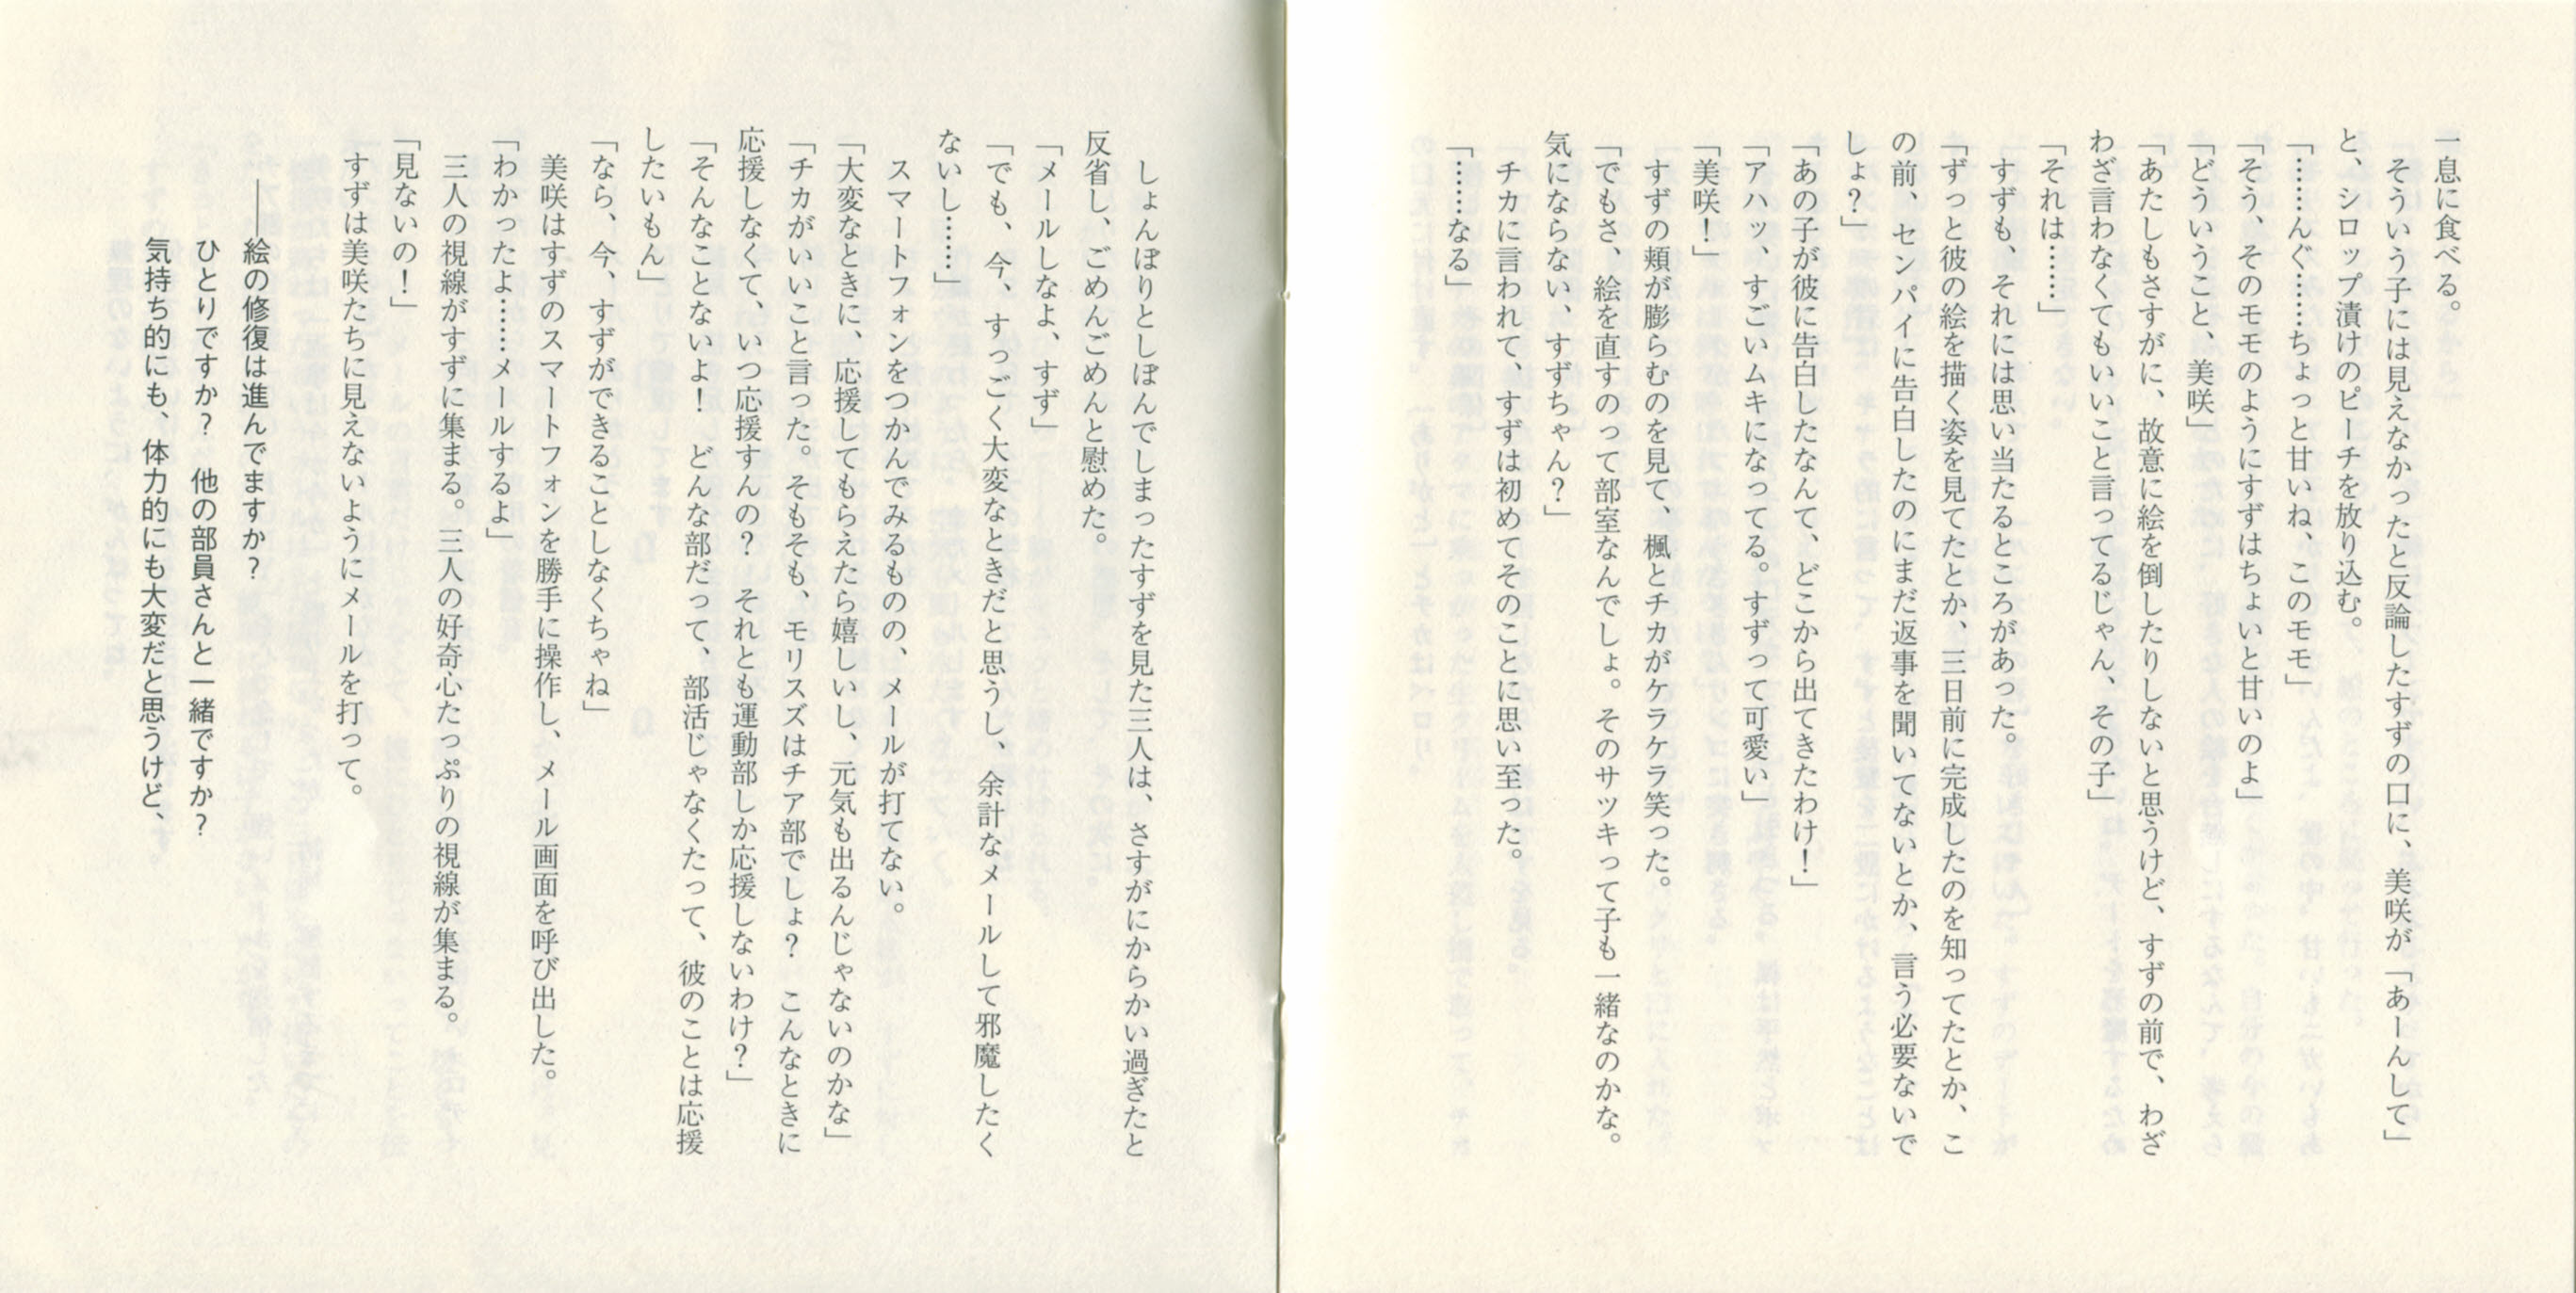 一息に食べる。
　そういう子には見えなかったと反論したすずの口に、美咲が「あーんして」
と、シロップ漬けのピーチを放り込む。
「……んぐ……ちょっと甘いね、このモモ」
「そう、そのモモのようにすずはちょいと甘いのよ」
「どういうこと、美咲」
「あたしもさすがに、故意に絵を倒したりしないと思うけど、すずの前で、わざ
わざ言わなくてもいいこと言ってるじゃん、その子」
「それは……」
　すずも、それには思い当たるところがあった。
「ずっと彼の絵を描く姿を見てたとか、三日前に完成したのを知ってたとか、こ
の前、センパイに告白したのにまだ返事を聞いてないとか、言う必要ないで
しょ？」
「あの子が彼に告白したなんて、どこから出てきたわけ！」
「アハッ、すごいムキになってる。すずって可愛い」
「美咲！」
　すずの頬が膨らむのを見て、楓とチカがケラケラ笑った。
「でもさ、絵を直すのって部室なんでしょ。そのサツキって子も一緒なのかな。
気にならない、すずちゃん？」
　チカに言われて、すずは初めてそのことに思い至った。
「……なる」
　しょんぼりとしぼんでしまったすずを見た三人は、さすがにからかい過ぎたと
反省し、ごめんごめんと慰めた。
「メールしなよ、すず」
「でも、今、すっごく大変なときだと思うし、余計なメールして邪魔したく
ないし……」
　スマートフォンをつかんでみるものの、メールが打てない。
「大変なときに、応援してもらえたら嬉しいし、元気も出るんじゃないのかな」
「チカがいいこと言った。そもそも、モリスズはチア部でしょ？　こんなときに
応援しなくて、いつ応援すんの？　それとも運動部しか応援しないわけ？」
「そんなことないよ！　どんな部だって、部活じゃなくたって、彼のことは応援
したいもん」
「なら、今、すずができることしなくちゃね」
　美咲はすずのスマートフォンを勝手に操作し、メール画面を呼び出した。
「わかったよ……メールするよ」
　三人の視線がすずに集まる。三人の好奇心たっぷりの視線が集まる。
「見ないの！」
　すずは美咲たちに見えないようにメールを打って。
　――絵の修復は進んでますか？
　　　ひとりですか？　他の部員さんと一緒ですか？
　　　気持ち的にも、体力的にも大変だと思うけど、